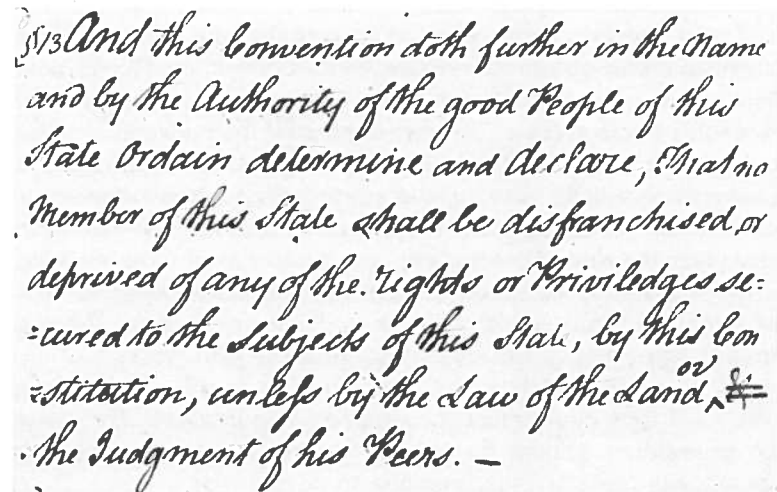 §13 And this Convention doth further in the Name
and by the Authority of the good People of this
State Ordain determine and declare, That no
Member of this State shall be disfranchised or
deprived of any of the rights or Priviledges se=
=cured to the Subjects of this State, by this Con
=stitution, unless by the Law of the Land, or
the Judgment of his Peers. —